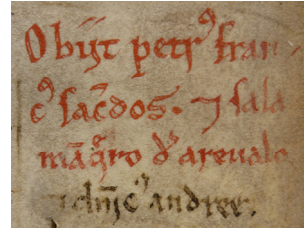 Obijt petrꝰ fran
cꝰ sac̄dos. ⁊ sala
māq̄ro d' areualo
andree.